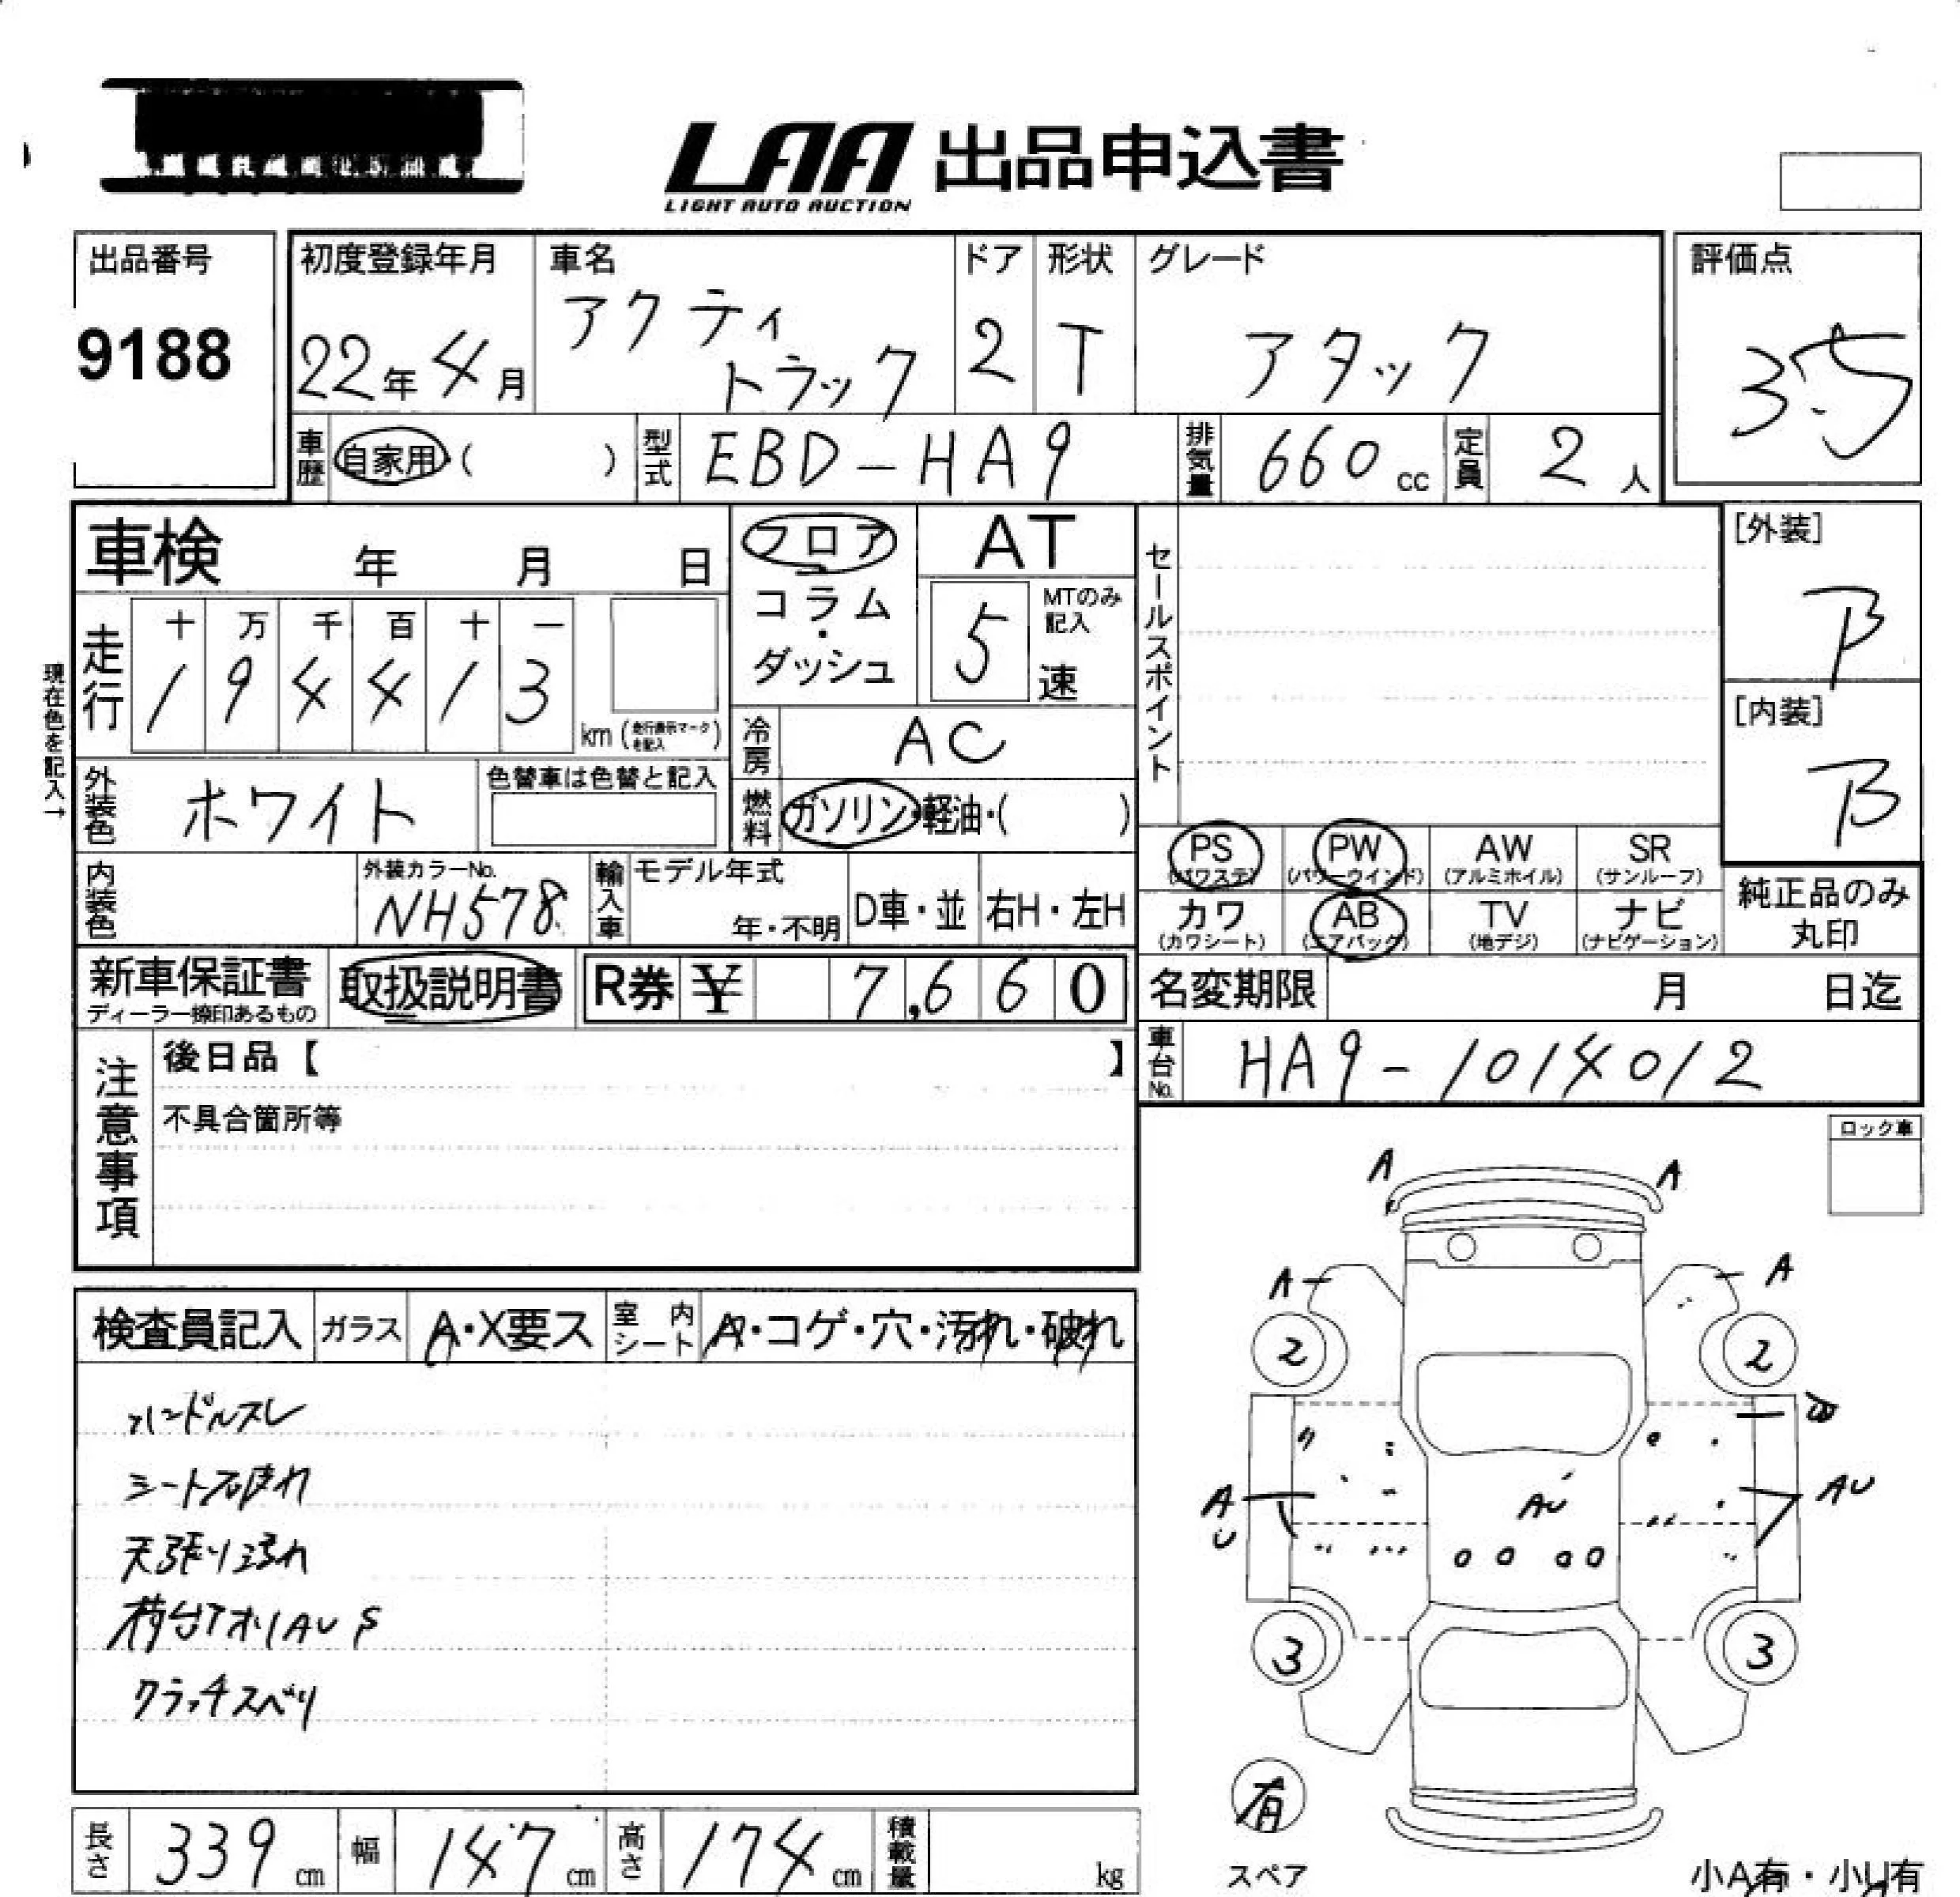 LAA 出品申込書
LIGHT AUTO AUCTION
出品番号
9188
初度登録年月
22年4月
車名
アクティ
トラック
ドア
2
形状
T
グレード
アタック
評価点
3.5
車歴 自家用 ( )
型式 EBD-HA9
排気量 660 cc
定員 2 人
車検 年 月 日
フロア
コラム・
ダッシュ
AT
5 MTのみ記入
速
セールスポイント
[外装]
B
[内装]
B
現在色を記入→
走行
十 万 千 百 十 一
1 9 4 4 1 3 km (走行表示マークを記入)
冷房 AC
外装色 ホワイト
色替車は色替と記入
燃料 ガソリン・軽油・( )
PS (パワステ)
PW (パワーウインド)
AW (アルミホイル)
SR (サンルーフ)
カワ (カワシート)
AB (エアバッグ)
TV (地デジ)
ナビ (ナビゲーション)
純正品のみ
丸印
内装色
外装カラーNo.
NH578
輸入車 モデル年式
年・不明
D車・並 右H・左H
新車保証書
ディーラー捺印あるもの
取扱説明書
R券 ¥ 7,660
名変期限 月 日迄
車台No. HA9-1014012
注意事項
後日品【 】
不具合箇所等
ロック車
検査員記入 ガラス A・X要ス 室内シート A・コゲ・穴・汚れ・破れ
ハンドルスレ
シート破れ
天張り汚れ
荷台アオリAU S
クラッチスベリ
A A
A A
2 2
A
U
AU
AU
3 3
有
スペア
小A有・小U有
長さ 339 cm
幅 147 cm
高さ 174 cm
積載量 kg